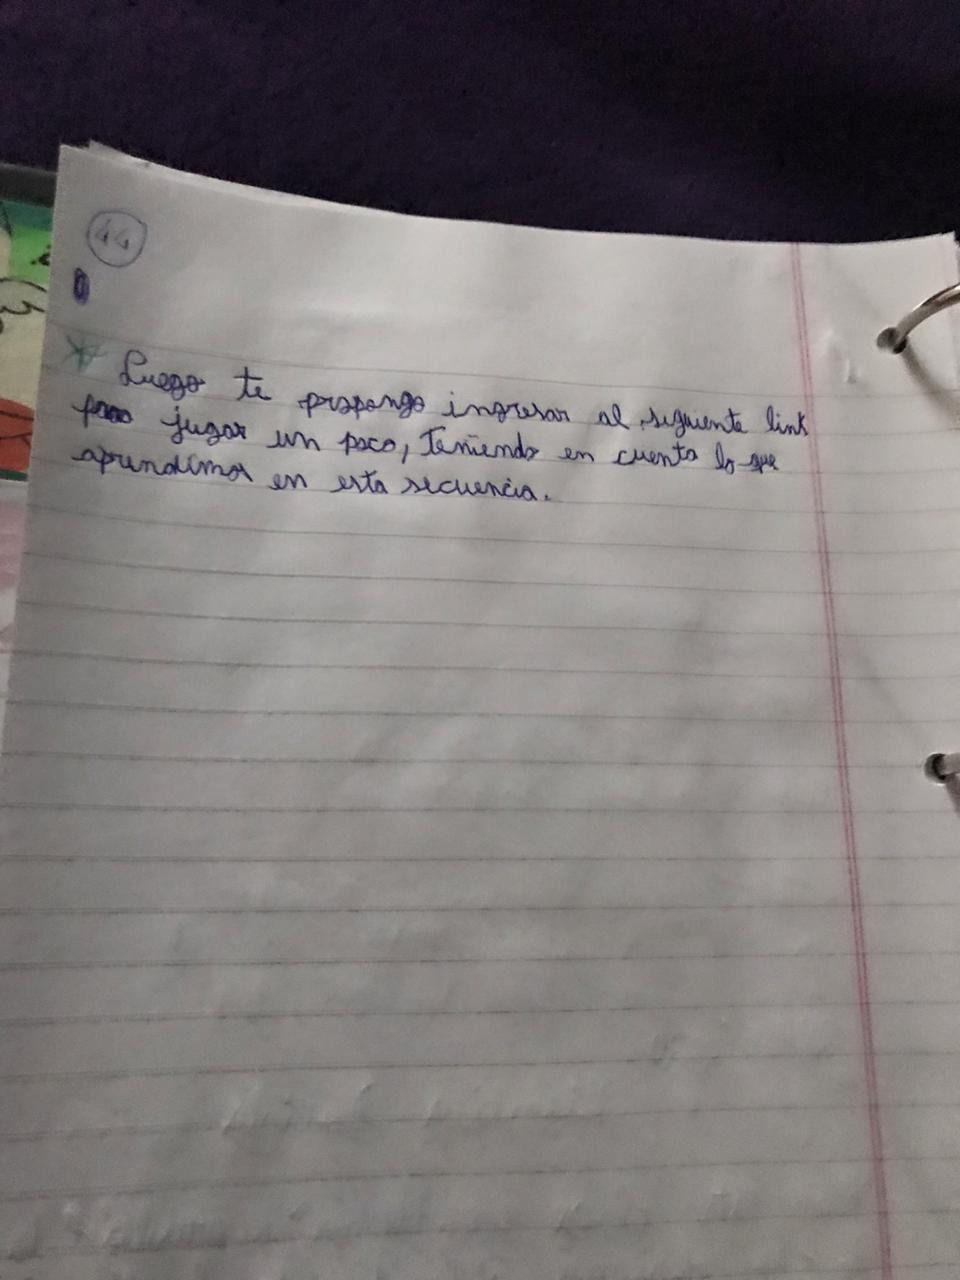 44
Luego te propongo ingresar al siguiente link
para jugar un poco, teniendo en cuenta lo que
aprendimos en esta secuencia.